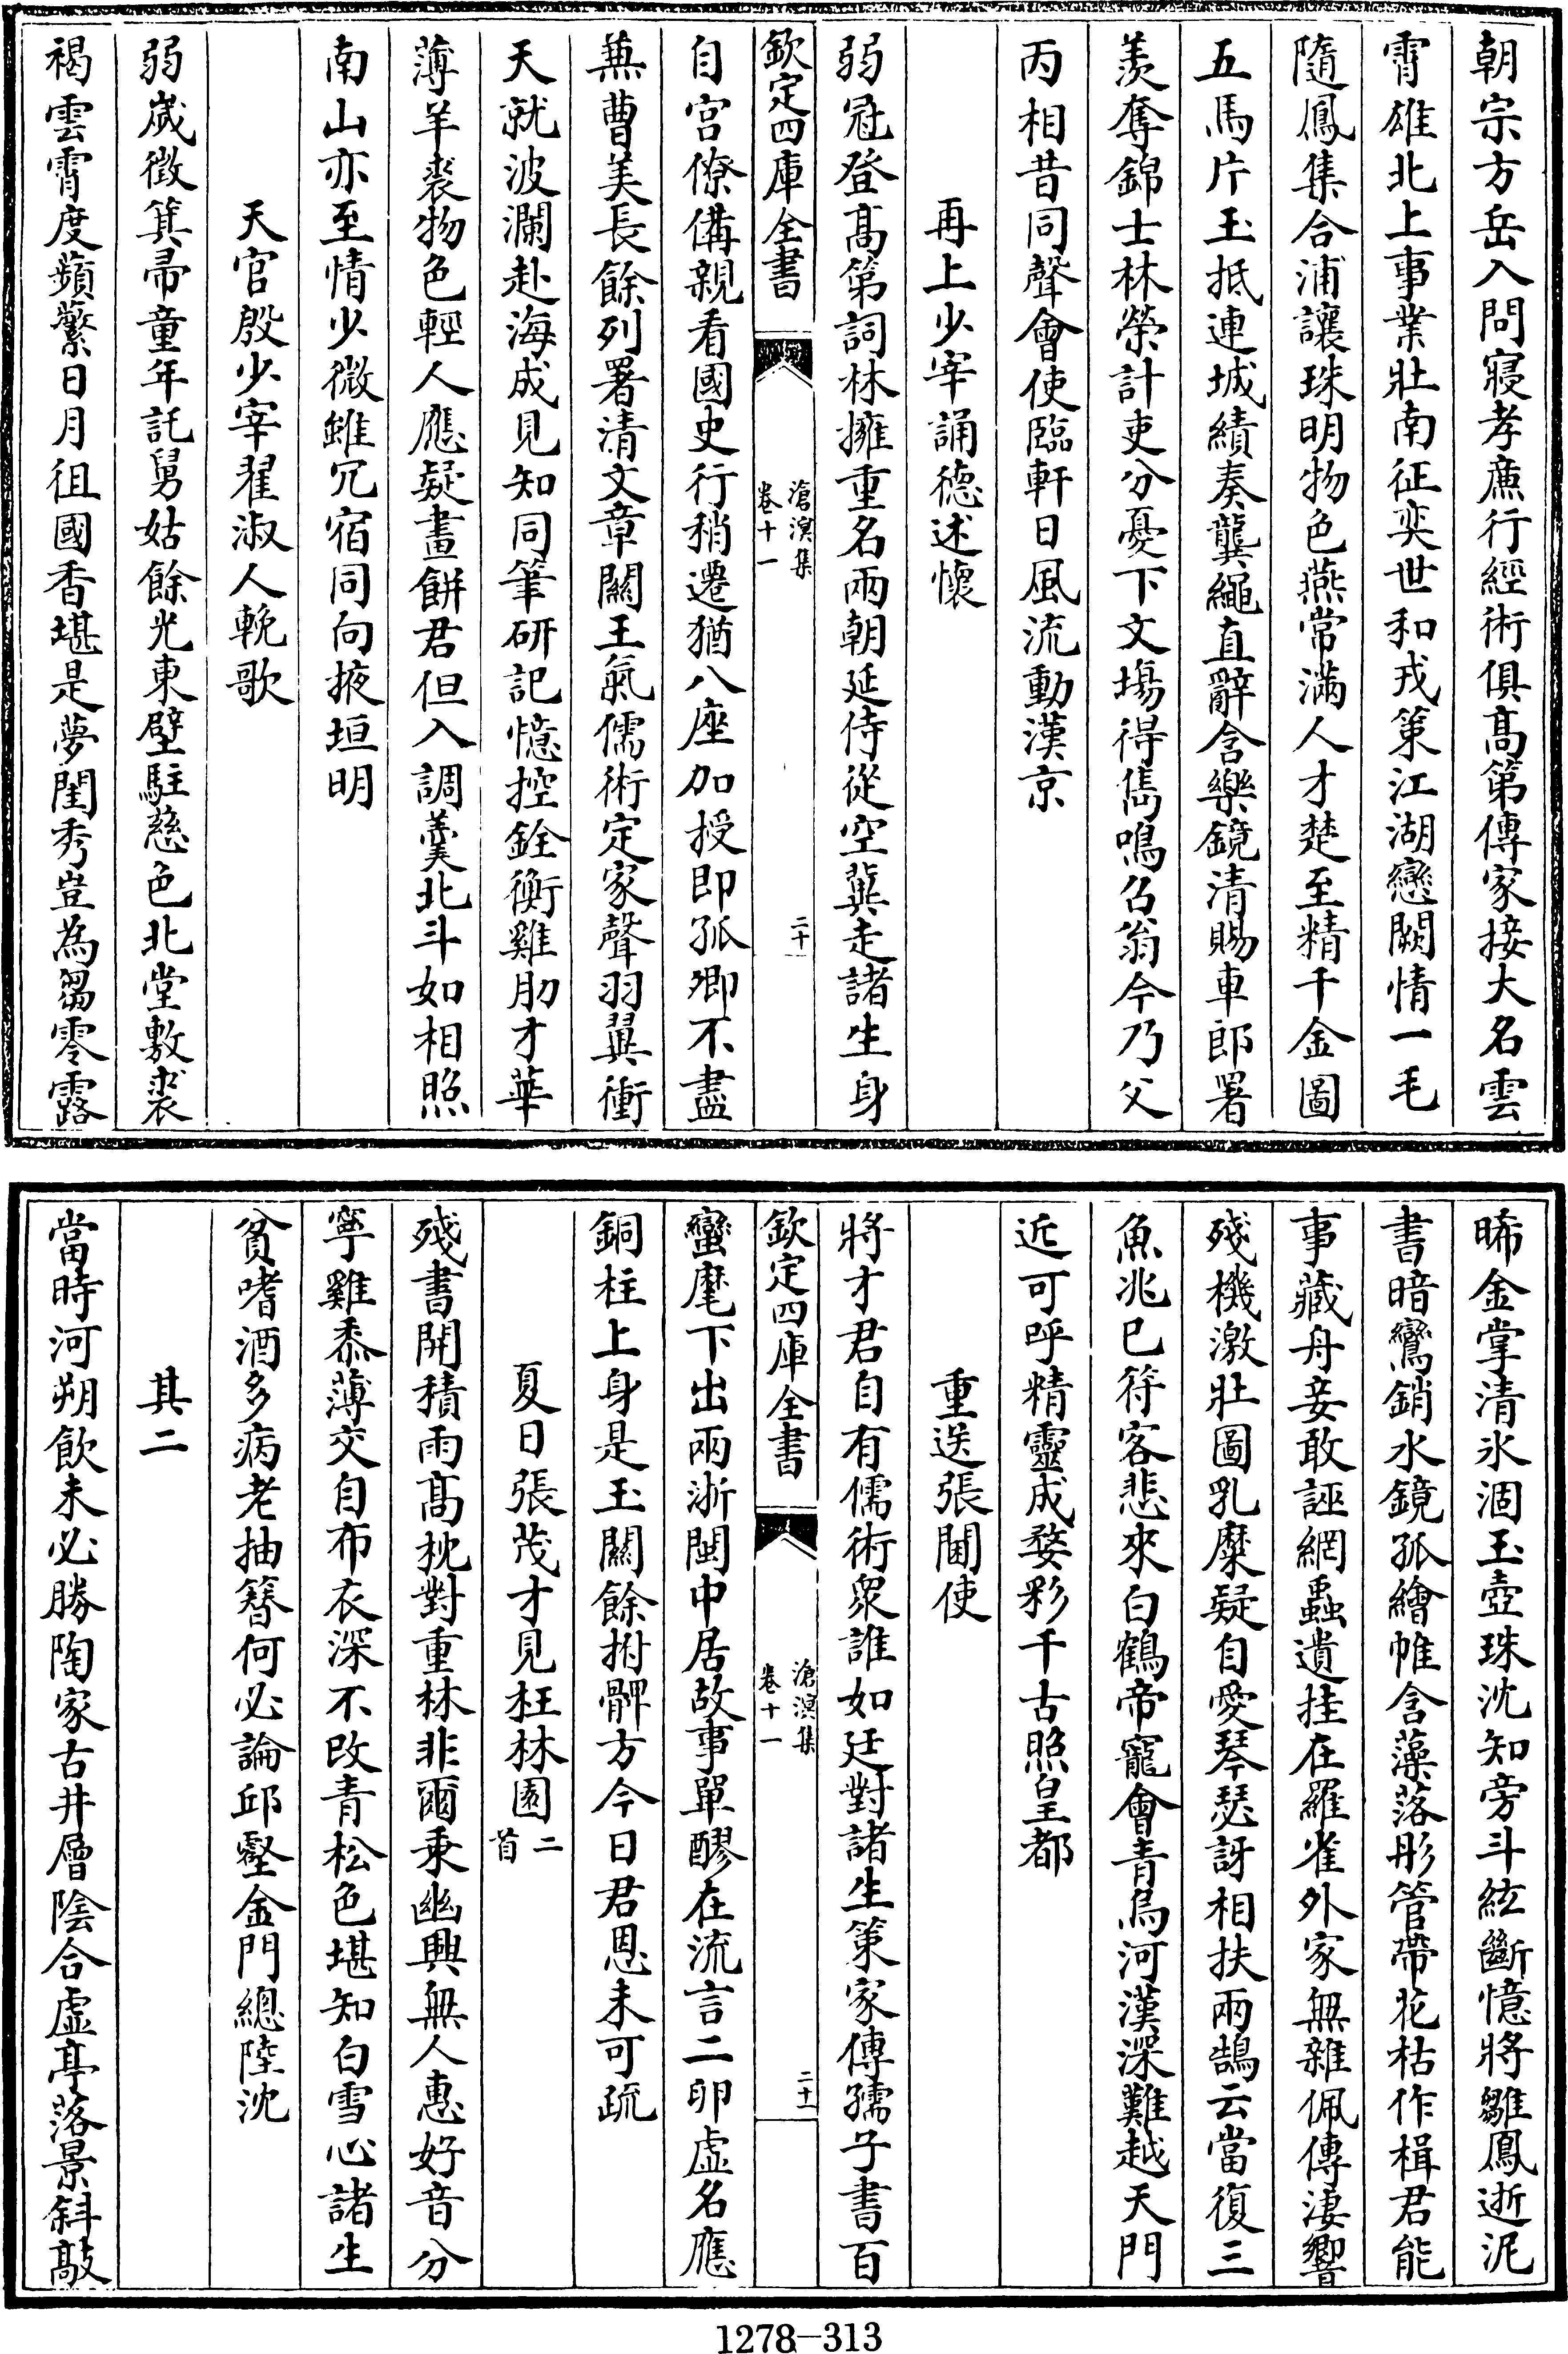 朝宗方岳入問寢孝廉行經術俱髙第傳家接大名雲
霄雄北上事業壯南征奕世和戎策江湖戀闕情一毛
隨鳳集合浦讓珠明物色燕常滿人才楚至精千金圖
五馬片玉抵連城績奏龔繩直辭含樂鏡清賜車郎署
羨奪錦士林榮計吏分憂下文塲得雋鳴召翁今乃父
丙相昔同聲會使臨軒日風流動漢京
再上少宰誦德述懷
弱冠登髙第詞林擁重名兩朝延侍從空冀走諸生身
欽定四庫全書
滄溟集
卷十一
二十
自宮僚備親看國史行稍遷猶八座加授即孤卿不盡
蕪曹美長餘列署清文章關王氣儒術定家聲羽翼衝
天就波瀾赴海成見知同筆研記憶控銓衡雞肋才華
薄羊裘物色輕人應疑畫餅君但入調羮北斗如相照
南山亦至情少微雖冗宿同向掖垣明
天官殷少宰翟淑人輓歌
弱嵗徴箕帚童年託舅姑餘光東壁駐慈色北堂敷裘
褐雲霄度蘋蘩日月徂國香堪是夢閨秀豈為芻零露
晞金掌清氷涸玉壺珠沈知旁斗絃斷憶將雛鳳逝泥
書暗鸞銷水鏡孤繪帷含藻落彤管帶花枯作楫君能
事藏舟妾敢誣網蟲遺挂在羅雀外家無雜佩傳淒響
殘機激壯圖乳糜疑自愛琴瑟訝相扶兩鵠云當復三
魚兆已符客悲來白鶴帝寵會青烏河漢深難越天門
近可呼精靈成婺彩千古照皇都
重送張閫使
將才君自有儒術衆誰如廷對諸生策家傳孺子書百
欽定四庫全書
滄溟集
卷十一
二十一
蠻麾下出兩浙閩中居故事單醪在流言二卵虚名應
銅柱上身是玉關餘拊髀方今日君恩未可疏
夏日張茂才見枉林園二首
殘書開積雨髙枕對重林非爾乗幽興無人惠好音分
寧雞黍薄交自布衣深不改青松色堪知白雪心諸生
貧嗜酒多病老抽簪何必論邱壑金門總陸沈
其二
當時河朔飲未必勝陶家古井層陰合虚亭落景斜敲
1278—313